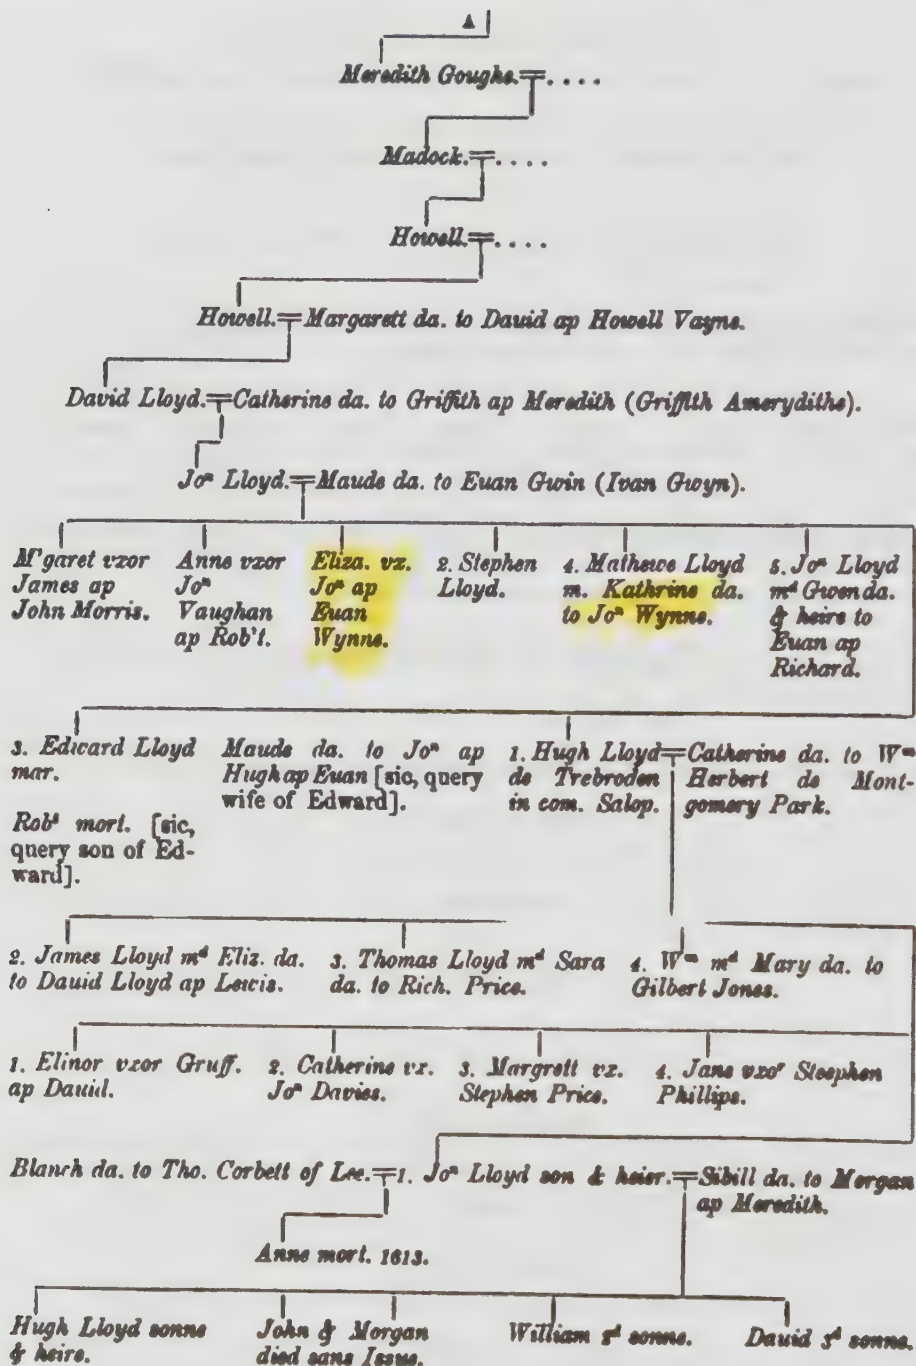 A
Meredith Goughe.=. . . .
Madock.=. . . .
Howell.=. . . .
Howell.=Margarett da. to Dauid ap Howell Vayne.
David Lloyd.=Catherine da. to Griffith ap Meredith (Griffith Amerydithe).
Joⁿ Lloyd.=Maude da. to Euan Gwin (Ivan Gwyn).
M'garet vxor
James ap
John Morris.
Anne vxor
Joⁿ
Vaughan
ap Rob't.
Eliza. vx.
Joⁿ ap
Euan
Wynne.
2. Stephen
Lloyd.
4. Mathewe Lloyd
m. Kathrine da.
to Joⁿ Wynne.
5. Joⁿ Lloyd
mᵈ Gwen da.
& heire to
Euan ap
Richard.
3. Edward Lloyd
mar.
Robᵗ mort. [sic,
query son of Ed-
ward].
Maude da. to Joⁿ ap
Hugh ap Euan [sic, query
wife of Edward].
1. Hugh Lloyd=
de Trebroden
in com. Salop.
Catherine da. to Wᵐ
Herbert de Mont-
gomery Park.
2. James Lloyd mᵈ Eliz. da.
to Dauid Lloyd ap Lewis.
3. Thomas Lloyd mᵈ Sara
da. to Rich. Price.
4. Wᵐ mᵈ Mary da. to
Gilbert Jones.
1. Elinor vxor Gruff.
ap Dauid.
2. Catherine vx.
Joⁿ Davies.
3. Margrett vx.
Stephen Price.
4. Jane vxoʳ Steephen
Phillips.
Blanch da. to Tho. Corbett of Lee.=1. Joⁿ Lloyd son & heier.=Sibill da. to Morgan
ap Meredith.
Anne mort. 1613.
Hugh Lloyd sonne
& heire.
John & Morgan
died sans Issue.
William 2ᵈ sonne.
Dauid 3ᵈ sonne.